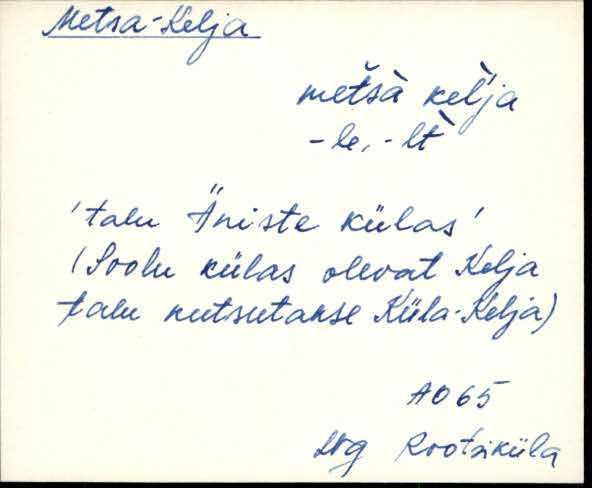 Metsa-Kelja
metsà kel̀ja
-le, -lt̀
'talu Äniste külas'
(Soolu külas olevat Kelja
talu kutsutakse Küla-Kelja)
AO65
Rootsiküla